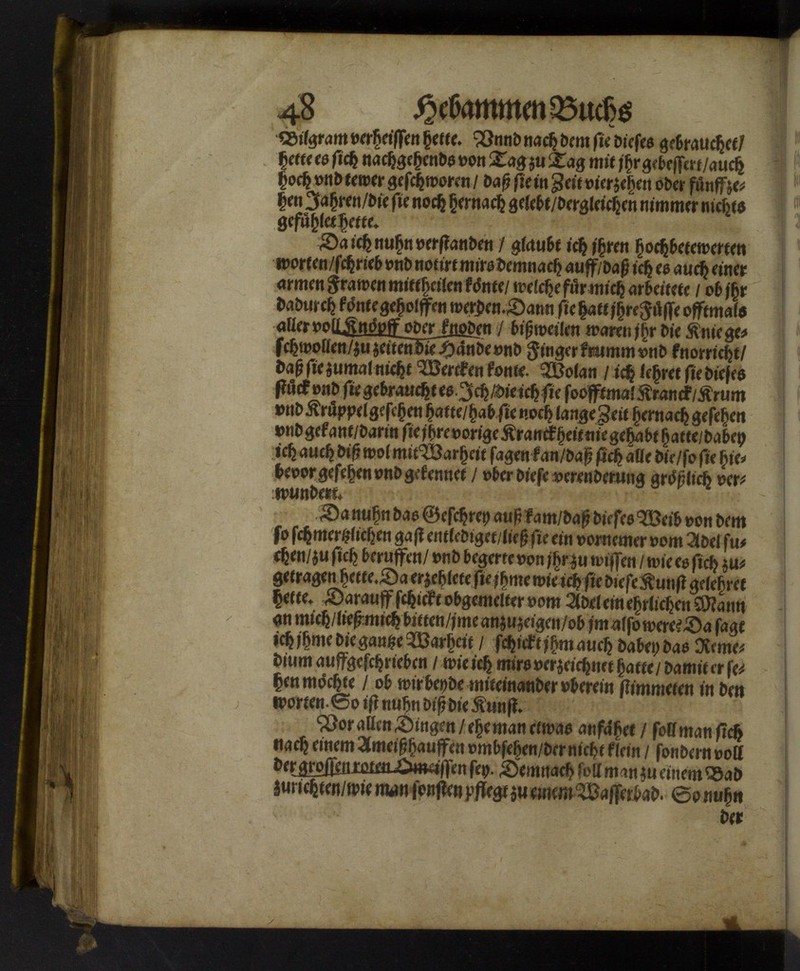 48 Hebammen Buchs
Bilgram verheissen hette. Vnnd nach dem sie dieses gebrauchet/
hette es sich nachgehends von Tag zu Tag mit jhr gebessert/auch
hoch vnd tewer geschworen/ daß sie in Zeit vierzehen oder fünffze⸗
hen Jahren/die sie noch hernach gelebt/dergleichen nimmer nichts
gefühlet hette.
Da ich nuhn verstanden / glaubt ich jhren hochbetewerten
worten/schrieb vnd notirt mirs demnach auff/daß ich es auch einer
armen Frawen mittheilen könte/ welche für mich arbeitete / ob jhr
dadurch könte geholffen werden. Dann sie hatt jhre Füsse offtmals
aller voll Knöpff oder knoden / bißweilen waren jhr die Knie ge⸗
schwollen/zu zeiten die Hände vnd Finger krumm vnd knorricht/
daß sie zumal nicht Wercken konte. Wolan / ich lehret sie dieses
stück vnd sie gebraucht es. Ich/die ich sie so offtmal Kranck/Krum
vnd Krüppel gesehen hatte/hab sie noch lange Zeit hernach gesehen
vnd gekant/darin sie jhre vorige Kranckheit nie gehabt hatte/dabey
ich auch diß wol mit Warheit sagen kan/daß sich alle die/so sie hie⸗
bevor gesehen vnd gekennet / vber diese verenderung größlich ver⸗
wundert.
Da nuhn das Geschrey auß kam/daß dieses Weib von dem
so schmertzlichen gast entlediget/ließ sie ein vornemer vom Adel su⸗
chen/zu sich beruffen/ vnd begerte von jhr zu wissen / wie es sich zu⸗
getragen hette. Da erzehlete sie jhme wie ich sie diese Kunst gelehret
hette. Darauff schickt obgemelter vom Adel ein ehrlichen Mann
an mich/ließ mich bitten/jme anzuzeigen/ob jm also were? Da sagt
ich jhme die gantze Warheit / schickt jhm auch dabey das Reme⸗
dium auffgeschrieben / wie ich mirs verzeichnet hatte / damit er se⸗
hen möchte / ob wir beyde miteinander vberein stimmeten in den
worten. So ist nuhn diß die Kunst.
Vor allen Dingen / ehe man etwas anfähet / soll man sich
nach einem Ameißhauffen vmbsehen/der nicht klein / sondern voll
der grossen roten Omeissen sey. Demnach soll man zu einem Bad
zurichten/wie man sonsten pflegt zu einem Wasserbad. So nuhn
der